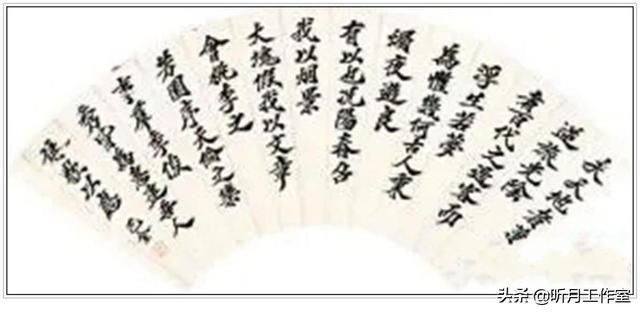 夫天地者萬
逆旅光陰
者百代之過客而
浮生若夢
為懽幾何古人秉
燭夜遊良
有以也況陽春召
我以烟景
大塊假我以文章
會桃李之
芳園序天倫之樂
事羣季俊
秀皆為惠連吾人
詠歌以為
头条 @听月工作室